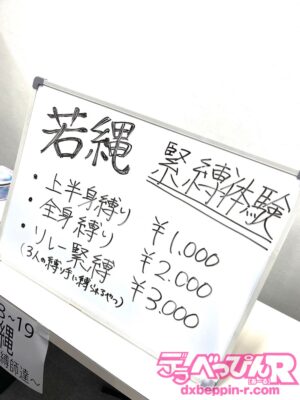 若縄 緊縛体験
・上半身縛り ¥1.000
・全身縛り ¥2.000
・リレー緊縛 ¥3.000
(3人の縛り手に縛られるやつ)
3~19
縄
縛師達~
デラべっぴんR
dxbeppin-r.com